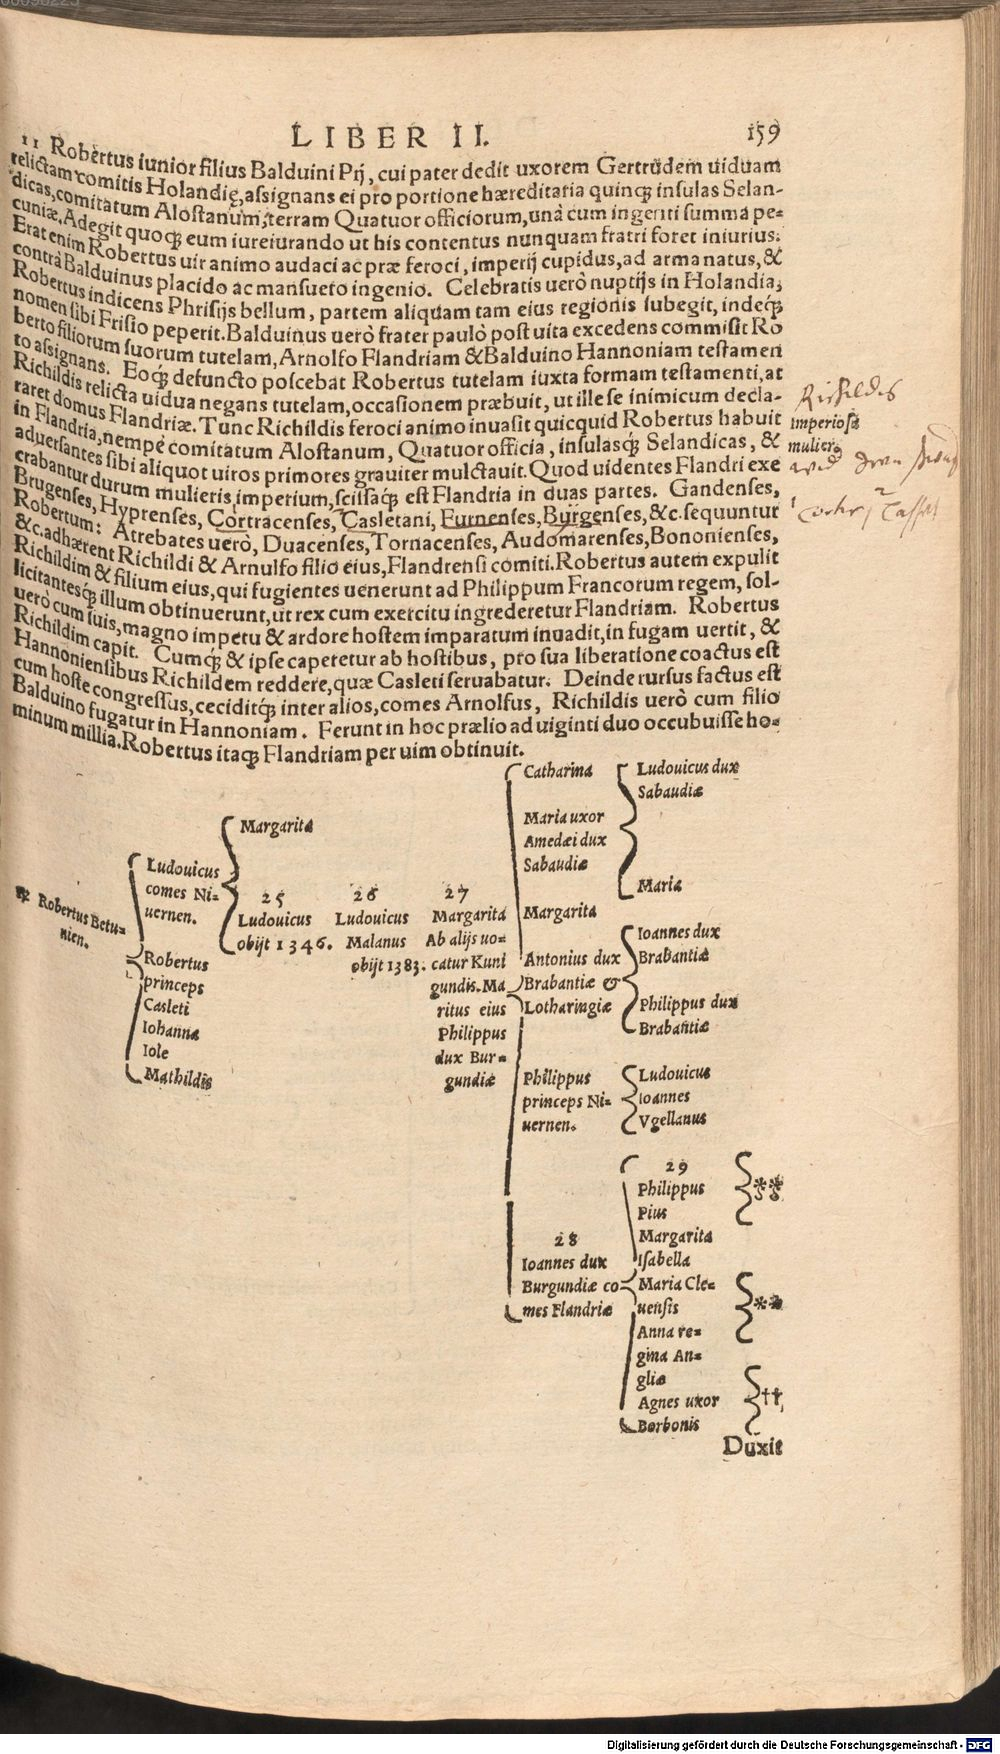 LIBER II. 159
11 Robertus iunior filius Balduini Pij, cui pater dedit uxorem Gertrudem uiduam
relictam comitis Holandię, assignans ei pro portione hæreditaria quinqȝ insulas Selan-
dicas, comitatum Alostanum, terram Quatuor officiorum, unà cum ingenti summa pe=
cuniæ. Adegit quoqȝ eum iureiurando ut his contentus nunquam fratri foret iniurius.
Erat enim Robertus uir animo audaci ac præ feroci, imperij cupidus, ad arma natus, &
contrà Balduinus placido ac mansueto ingenio. Celebratis uerò nuptijs in Holandia,
Robertus indicens Phrisijs bellum, partem aliquam tam eius regionis subegit, indeqȝ
nomen sibi Frisio peperit. Balduinus uerò frater paulò post uita excedens commisit Ro
berto filiorum suorum tutelam, Arnolfo Flandriam & Balduino Hannoniam testamen
to assignans. Eoqȝ defuncto poscebat Robertus tutelam iuxta formam testamenti, at
Richildis relicta uidua negans tutelam, occasionem præbuit, ut ille se inimicum decla-
raret domus Flandriæ. Tunc Richildis feroci animo inuasit quicquid Robertus habuit
in Flandria, nempe comitatum Alostanum, Quatuor officia, insulasqȝ Selandicas, &
aduersantes sibi aliquot uiros primores grauiter mulctauit. Quod uidentes Flandri exe
crabantur durum mulieris imperium, scissaqȝ est Flandria in duas partes. Gandenses,
Brugenses, Hyprenses, Cortracenses, Casletani, Furnenses, Burgenses, &c. sequuntur
Robertum: Atrebates uerò, Duacenses, Tornacenses, Audomarenses, Bononienses,
&c. adhærent Richildi & Arnulfo filio eius, Flandrensi comiti. Robertus autem expulit
Richildim & filium eius, qui fugientes uenerunt ad Philippum Francorum regem, sol-
licitantesqȝ illum obtinuerunt, ut rex cum exercitu ingrederetur Flandriam. Robertus
uerò cum suis, magno impetu & ardore hostem imparatum inuadit, in fugam uertit, &
Richildim capit. Cumqȝ & ipse caperetur ab hostibus, pro sua liberatione coactus est
Hannoniensibus Richildem reddere, quæ Casleti seruabatur. Deinde rursus factus est
cum hoste congressus, ceciditqȝ inter alios, comes Arnolfus, Richildis uerò cum filio
Balduino fugatur in Hannoniam. Ferunt in hoc prælio ad uiginti duo occubuisse ho=
minum millia. Robertus itaqȝ Flandriam per uim obtinuit.
Richildis
imperiosa
mulier
Robertus Betu=
nien.
Ludouicus
comes Ni=
uernen.
Robertus
princeps
Casleti
Iohanna
Iole
Mathildis
Margarita
25
Ludouicus
obijt 1346.
26
Ludouicus
Malanus
obijt 1383.
27
Margarita
Ab alijs uo=
catur Kuni
gundis. Ma
ritus eius
Philippus
dux Bur=
gundiæ
Catharina
Maria uxor
Amedæi dux
Sabaudiæ
Margarita
Antonius dux
Brabantiæ &
Lotharingiæ
Philippus
princeps Ni=
uernen.
28
Ioannes dux
Burgundiæ co=
mes Flandriæ
Ludouicus dux
Sabaudiæ
Maria
Ioannes dux
Brabantiæ
Philippus dux
Brabantiæ
Ludouicus
Ioannes
Vgellanus
29
Philippus
Pius
Margarita
Isabella
Maria Cle=
uensis
Anna re=
gina An=
gliæ
Agnes uxor
Borbonis
**
**
††
Duxit
Digitalisierung gefördert durch die Deutsche Forschungsgemeinschaft - DFG